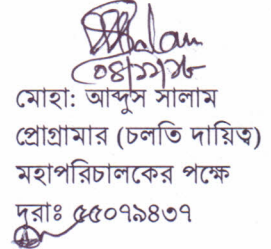 Salam
০৪/১১/১৮
মোহা: আব্দুস সালাম
প্রোগ্রামার (চলতি দায়িত্ব)
মহাপরিচালকের পক্ষে
দূরাঃ ৫৫০৭৯৪৩৭